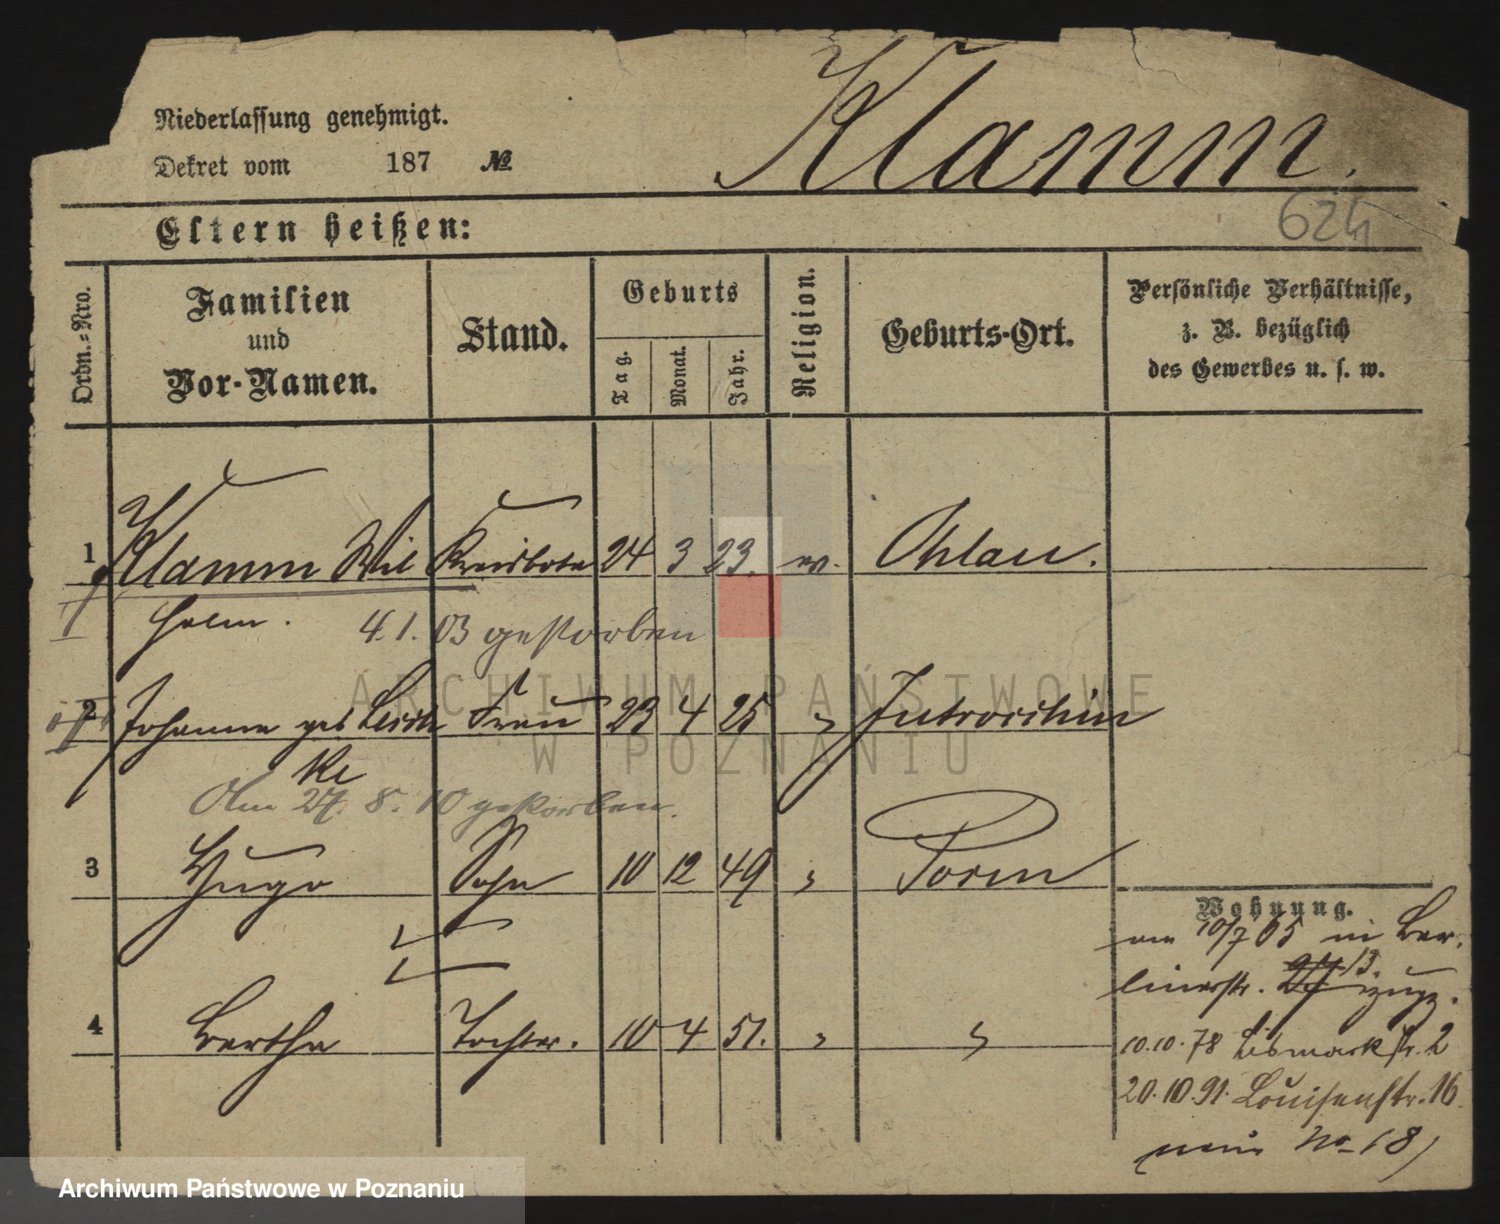 Klamm.
Niederlassung genehmigt.
Dekret vom 187 №
Eltern heißen:
624
Ordn.=Nro.
Familien
und
Vor-Namen.
Stand.
Geburts
Tag.
Monat.
Jahr.
Religion.
Geburts-Ort.
Persönliche Verhältnisse,
z. B. bezüglich
des Gewerbes u. s. w.
1 Klamm Wil Kreisbote 24 3 23. ev. Ohlau.
helm. 4.1.03 gestorben
2 Johanna geb Frau 23 4 25 " Jutroschin
ke
Am 27. 8. 10 gestorben.
3 Hugo Sohn 10 12 49 " Posen
4 Bertha Tochter. 10 4 51. " "
Wohnung.
10/7 65 in Ber,
linerstr. 13. zugz.
10.10.78 Bismarckstr. 2
20.10.91. Louisenstr. 16
No 18)
ARCHIWUM PAŃSTWOWE
W POZNANIU
Archiwum Państwowe w Poznaniu